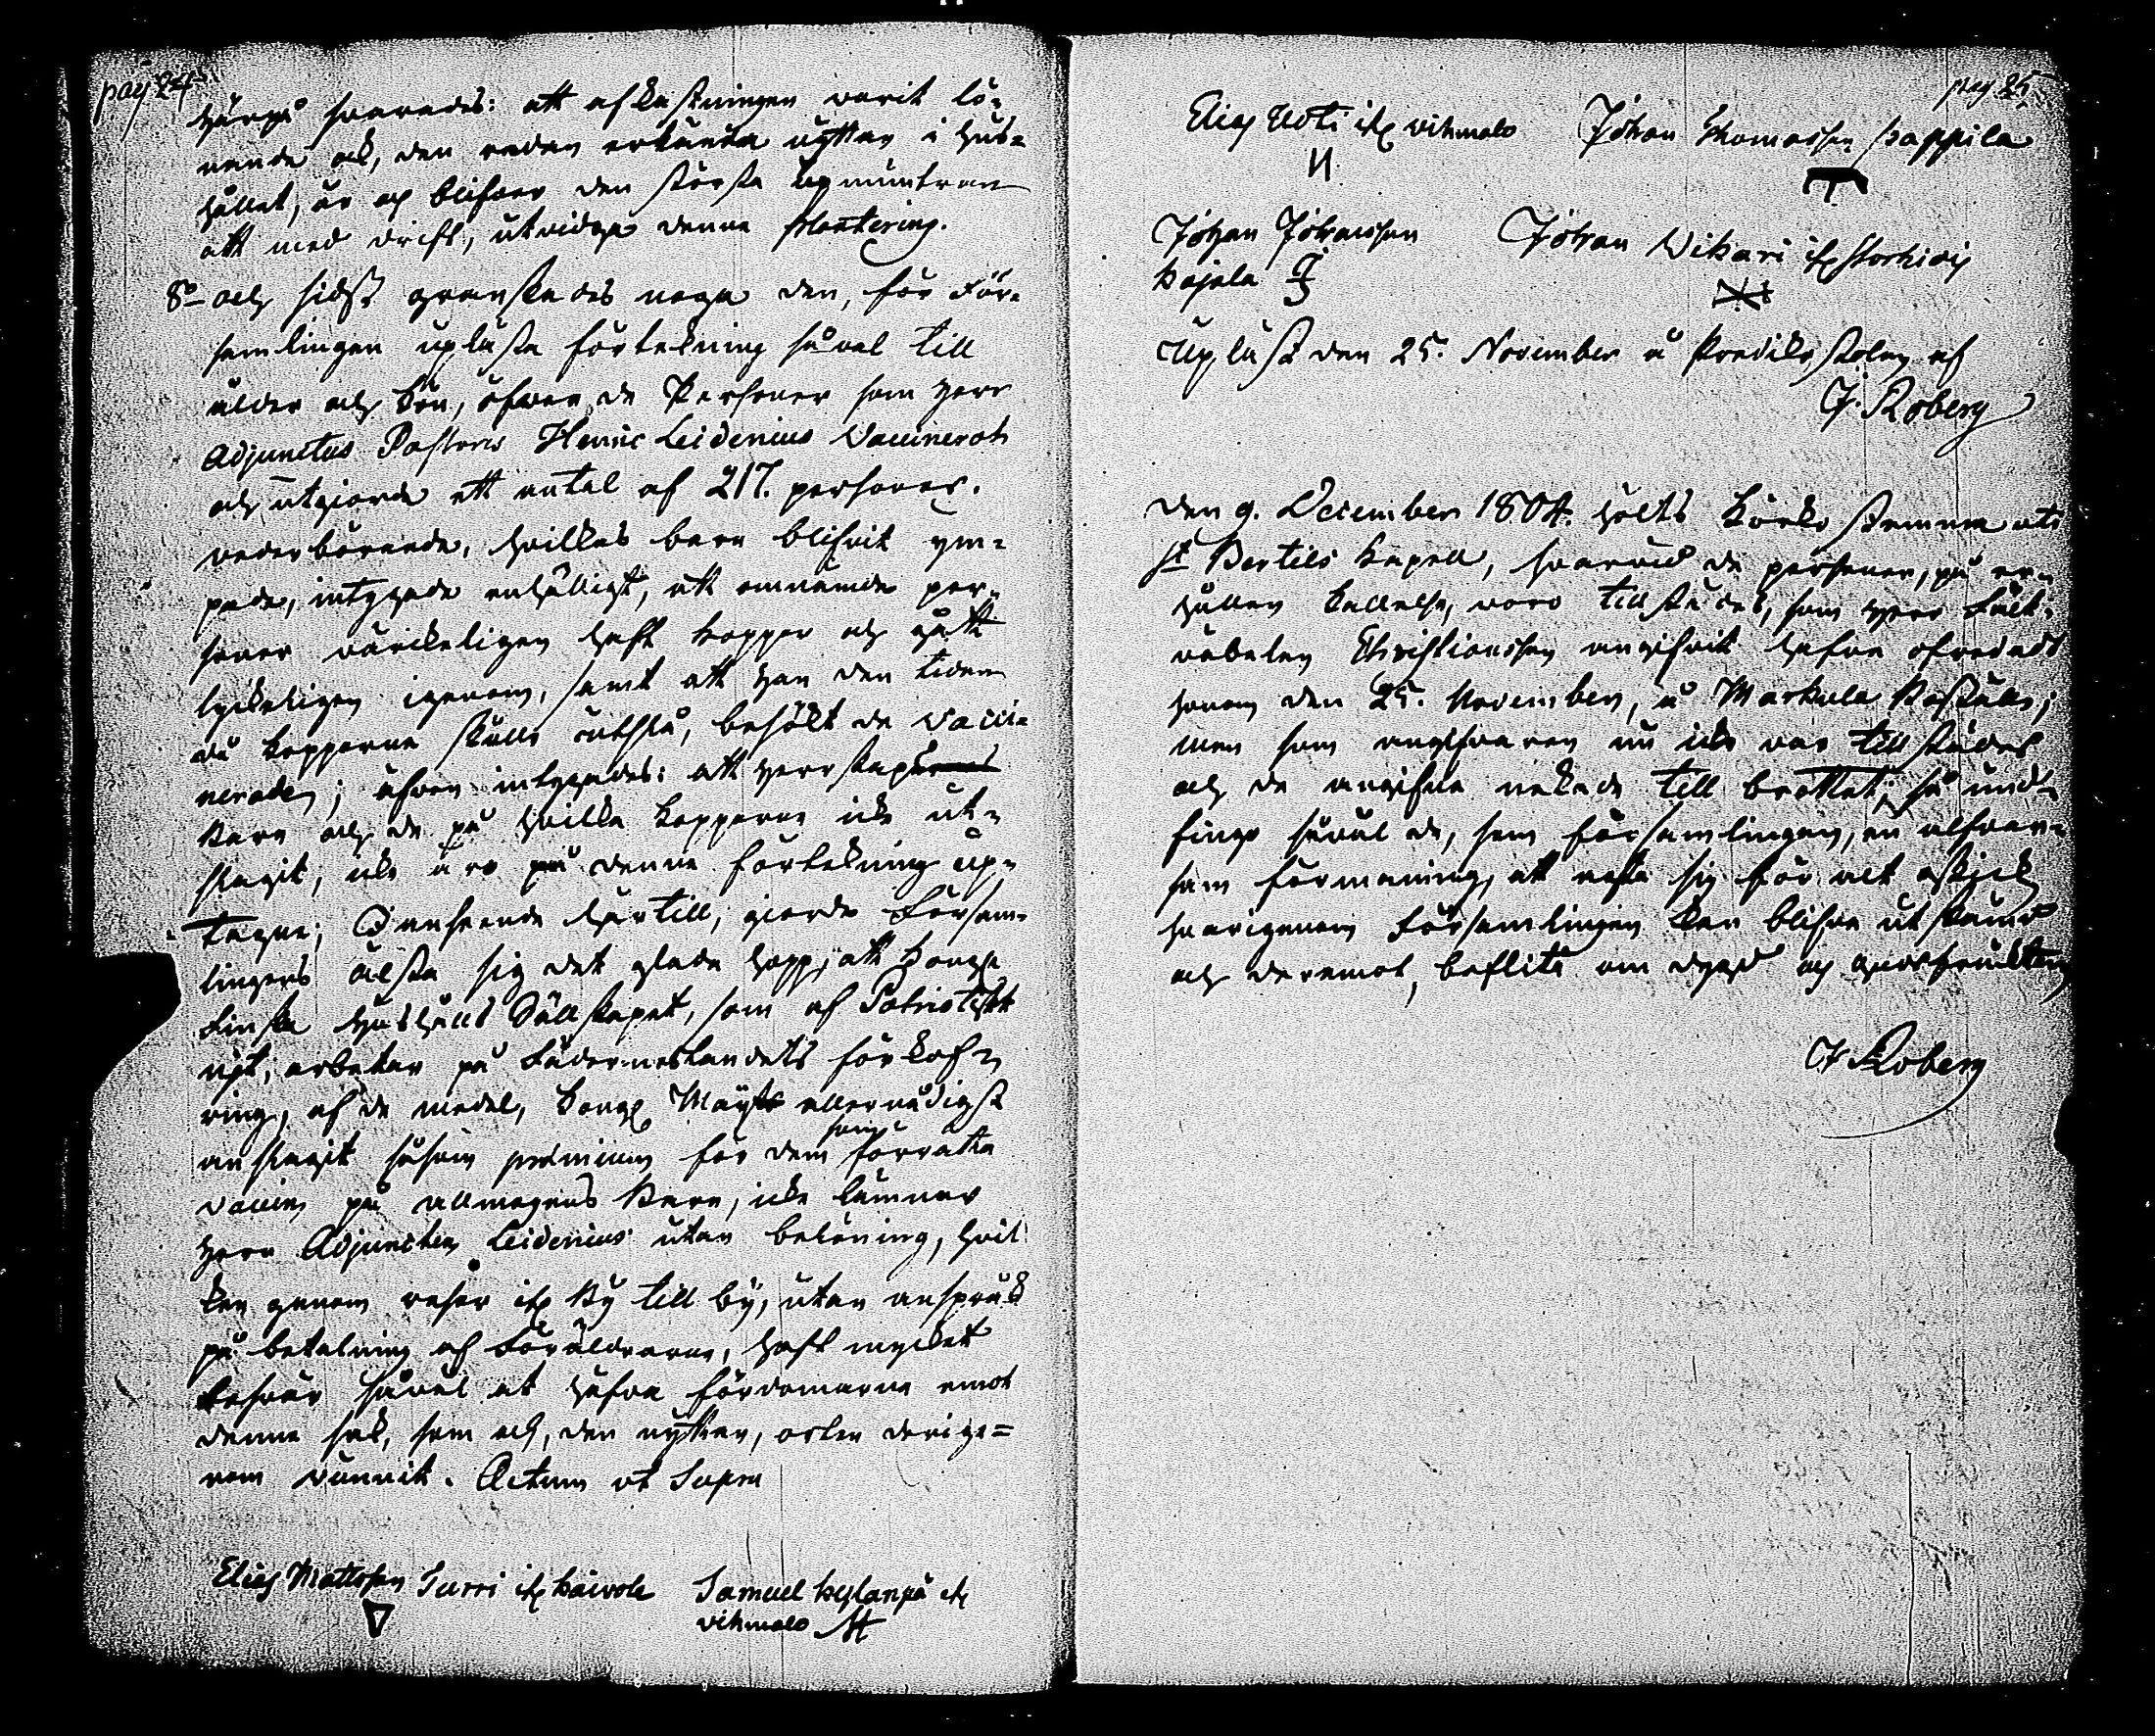 pag 24.
härpå svarades: att afkastningen varit lö-
nande och, den redan erkända nyttan i hus-
hållet, är och blifver den största upmuntran
att med drift, utvidga denna Plantering.
8o och sidst granskades noga den, för För-
samlingen upläste förtekning såväl till
ålder och kön, öfver de Personer som Herr
Adjunctus Pastoris Henric Leidenius Vaccinerat
och utgiorde ett antal af 217. personer.
vederbörande, hvilkas barn blifvit ym-
pade, intygade enhälligt, att omnämde per-
soner värckeligen haft koppor och gått
lyckeligen igenom, samt att han den tiden
då kopporne skulle utslå, besökt de Vacci-
nerade; äfven intygades: att Herrskaps
Barn och de på hvilka kopporne icke ut-
slagit, icke äro på denna förtekning up-
tagne; I anseende härtill, giorde Försam-
lingens älsta sig det glada hopp, att Kongl.
Finska Hushålls Sällskapet, som af Patriotiskt
nit, arbetar på Fäderneslandets förkof-
ring, af de medel, Kongl. Maij:t allernådigst
anslagit såsom præmium för dem som förrätta
vaccin på allmogens Barn, icke lämnar
Herr Adjuncten Leidenius utan belöning, hvil
ken genom resor ifr. By till by, utan anspråk
på betalning af Föräldrarne, haft mycket
besvär såväl at häfva fördomarna emot
denna sak, som och, den nyttan, orten derige=
nom vunnit. Actum ut Supra
Elias Mattsson Surri ifr. kaivola Samuel kylänpä ifr.
vihmalo
pag 25.
Elias Uoti ifr. vihmalo Johan Thomasson Pappila
Johan Johansson Johan Vikari ifr.
kajala
Upläst den 25. November å Predikostolen af
J. Roberg
Den 9. December 1804. hölts Kyrko stemma uti
St Bertils kapell, hvarvid de personer, på er-
hållen kallelse, voro tillstädes, som Herr Fält-
väbelen Christiansson angifvit hafva ofredadt
honom den 25. November, å Markula Boställe;
men som angifvaren nu icke var tillstädes
och de angifne nekade till brottet; så und-
fingo såväl de, som församlingen, en alfvar-
sam förmaning, att akta sig för alt oskick
hvarigenom Församlingen kan blifva utskämd
och deremot, beflita om dygd och gudsfruktan
J Roberg